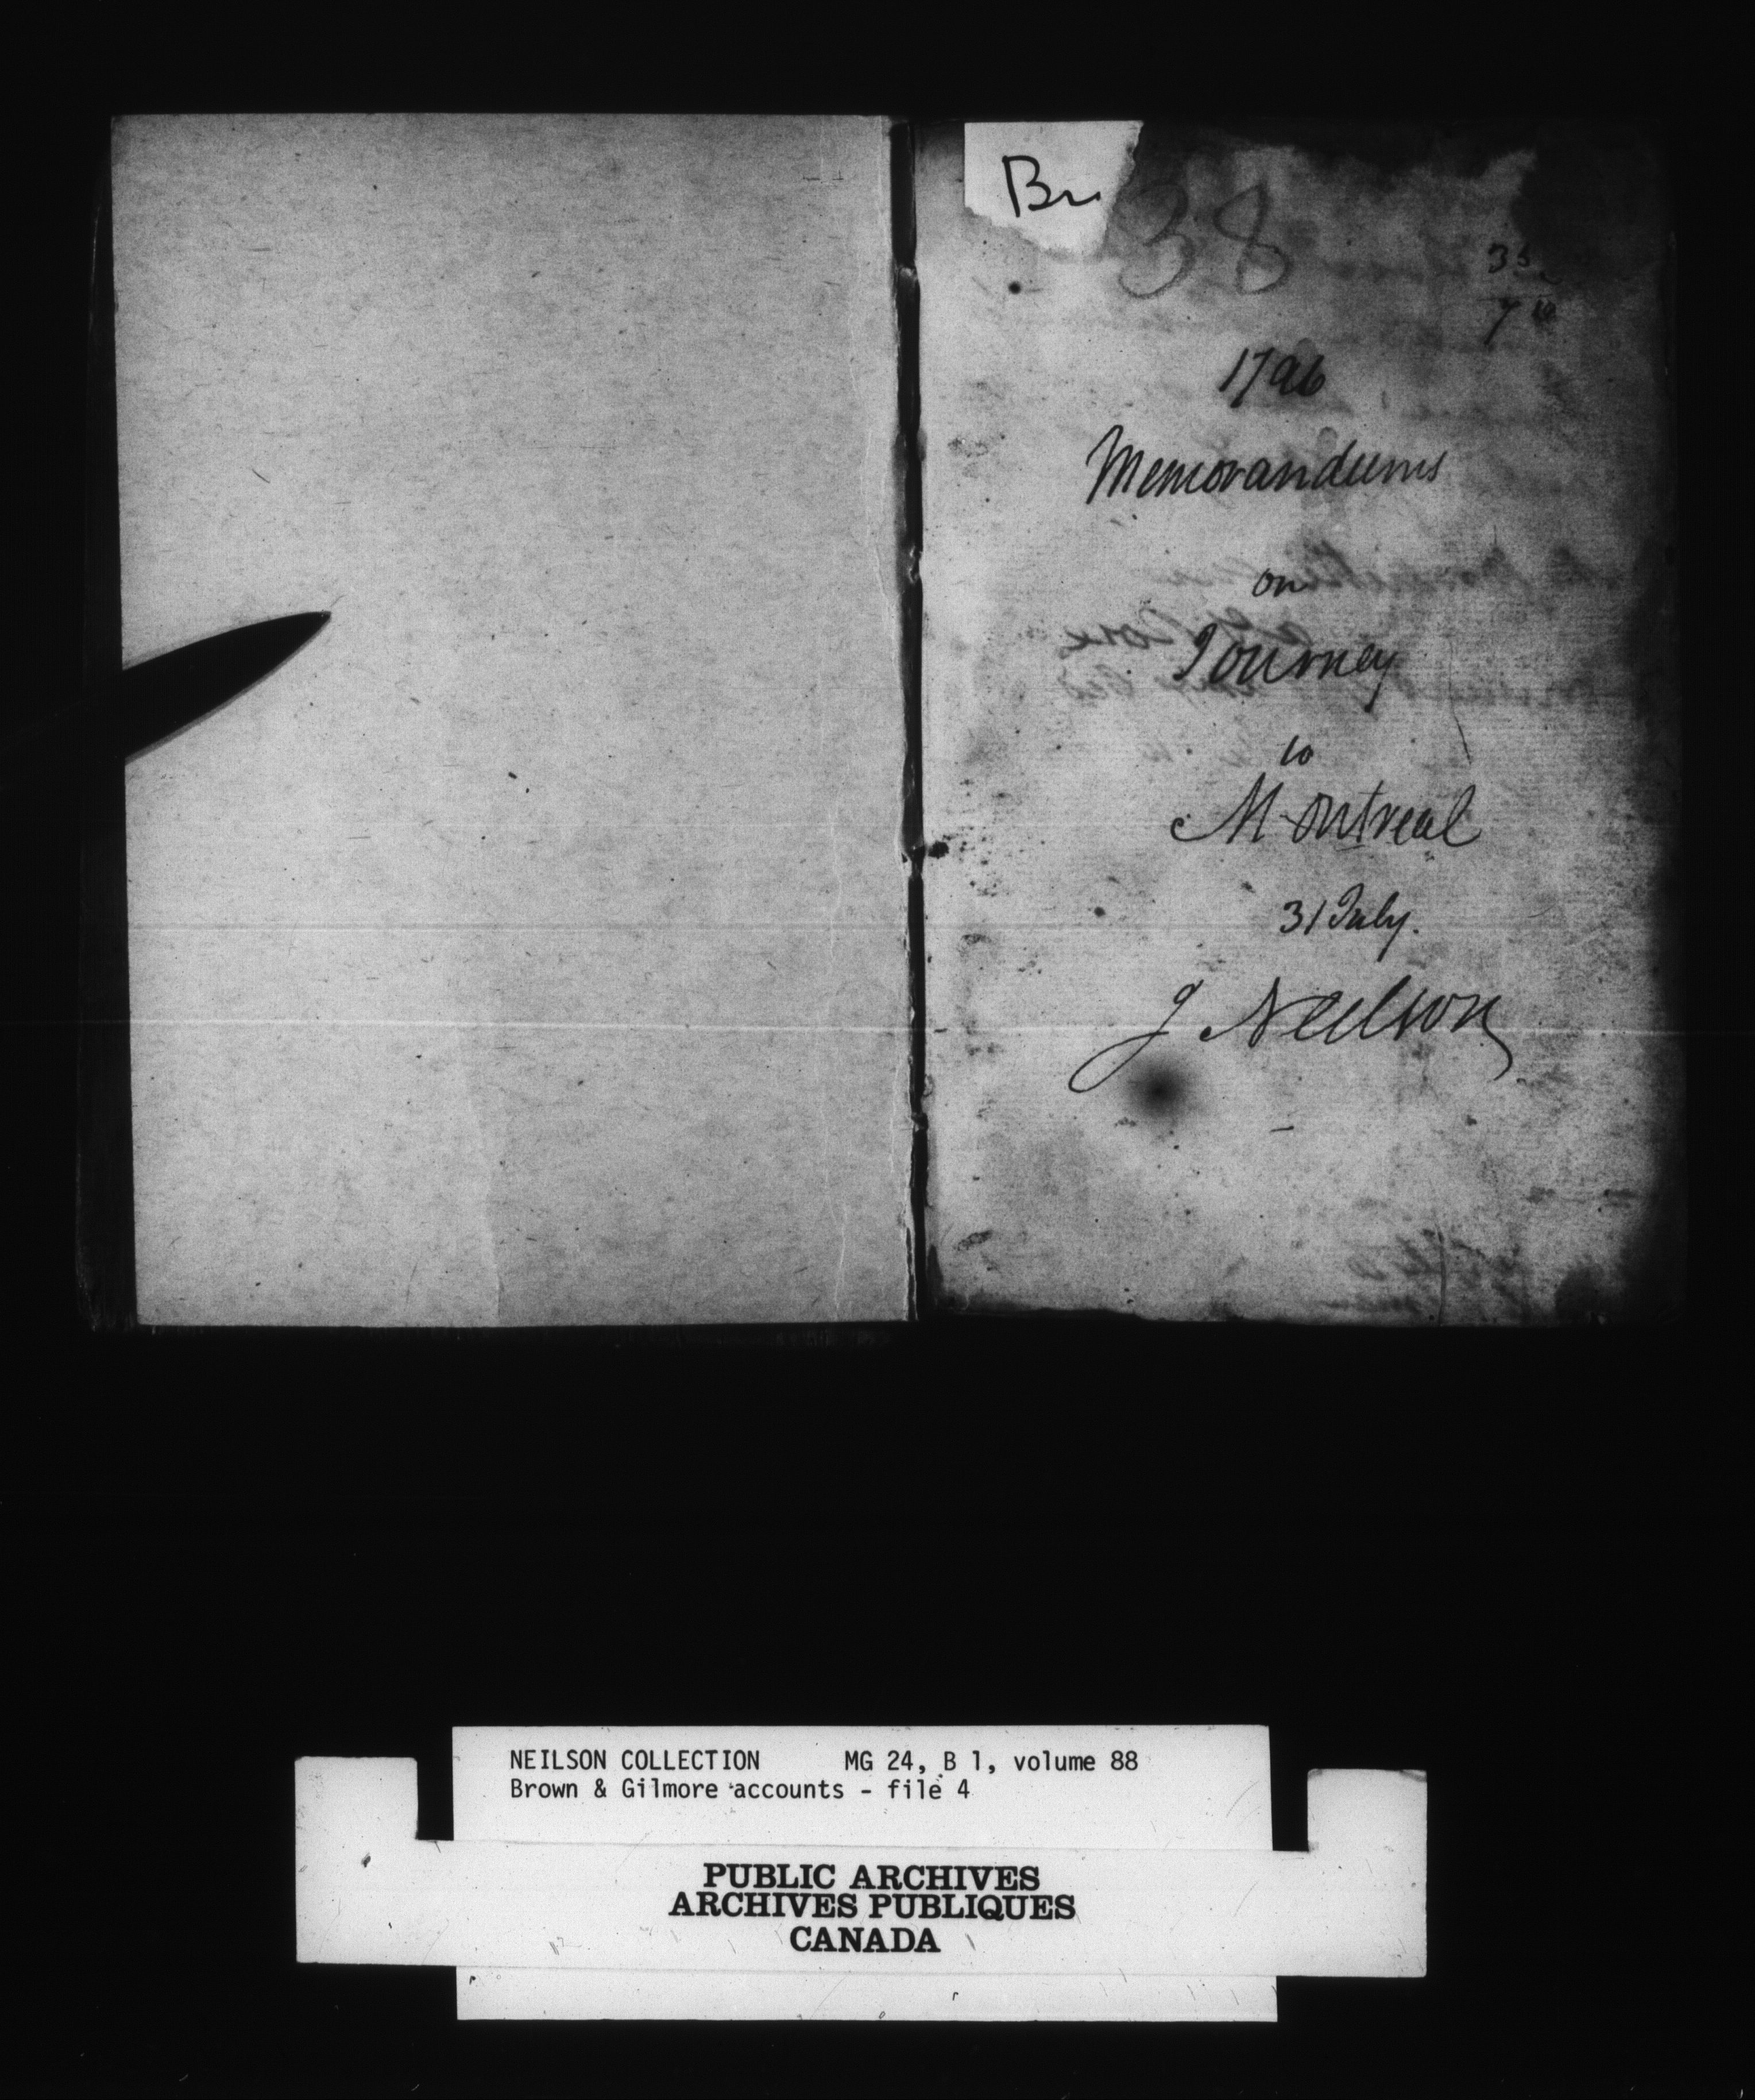 Br
38
1796
Memorandums
on
Journey
to
Montreal
31 July.
J Neilson
NEILSON COLLECTION MG 24, B 1, volume 88
Brown & Gilmore accounts - file 4
PUBLIC ARCHIVES
ARCHIVES PUBLIQUES
CANADA